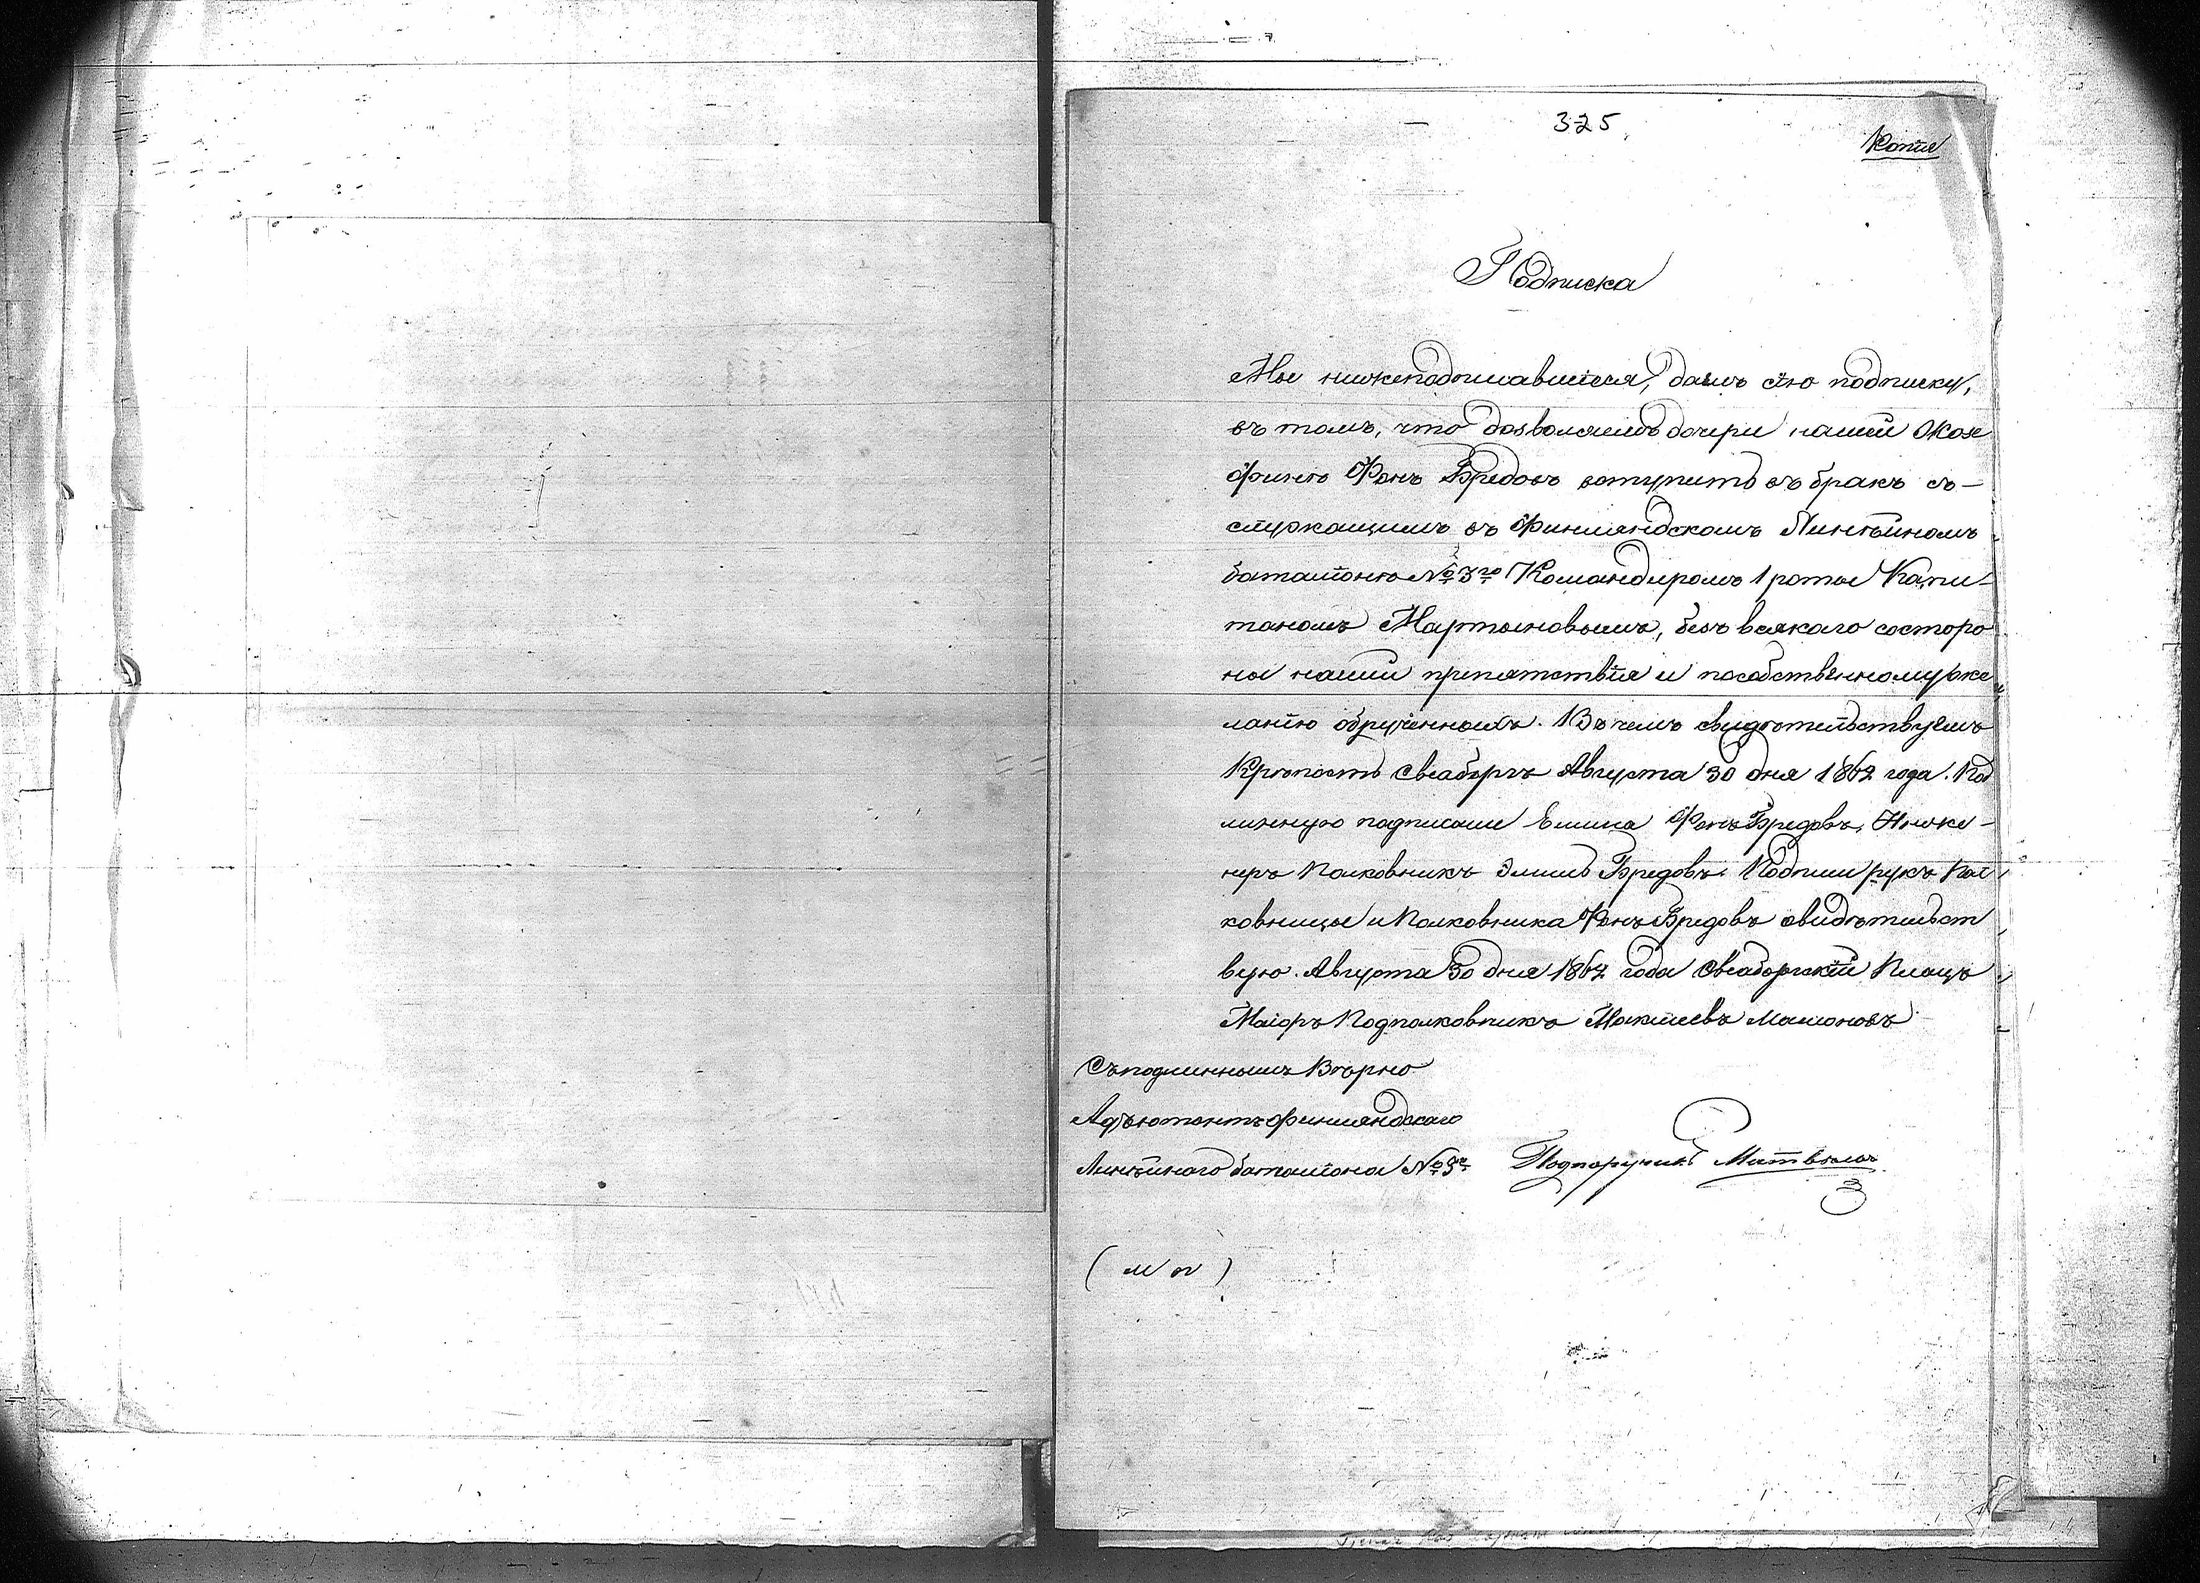 325
Копія
Подписка
Мы нижеподписавшіеся, даемъ сію подписку,
въ томъ, что дозволяемъ дочери нашей Жозе
финѣ Фонъ Бредовъ вступить въ бракъ съ
служащимъ въ Финляндскомъ Линѣйномъ
баталіонѣ № 3го Командиромъ 1 роты Капи-
таномъ Мартыновымъ, безъ всякаго состоро
ны нашей препятствія и пособственномуже
ланію обрученныхъ. Въ чемъ свидѣтельствуемъ
Крѣпость Свеаборгъ Августа 30 дня 1862 года. Под
линную подписали Фонъ Бредовъ, Инже-
неръ Полковникъ Эмиль Бредовъ. Подписи рукъ Пол
ковницы и Полковника Фонъ Бредовъ свидѣтельст
вую. Августа 30 дня 1862 года Свеаборгскій Плацъ
Маіоръ Подполковникъ
Съподлиннымъ Вѣрно
Адъютантъ Финляндскаго
Линѣйнаго баталіона № 3го Подпоручикъ Матвѣевъ
(М П)